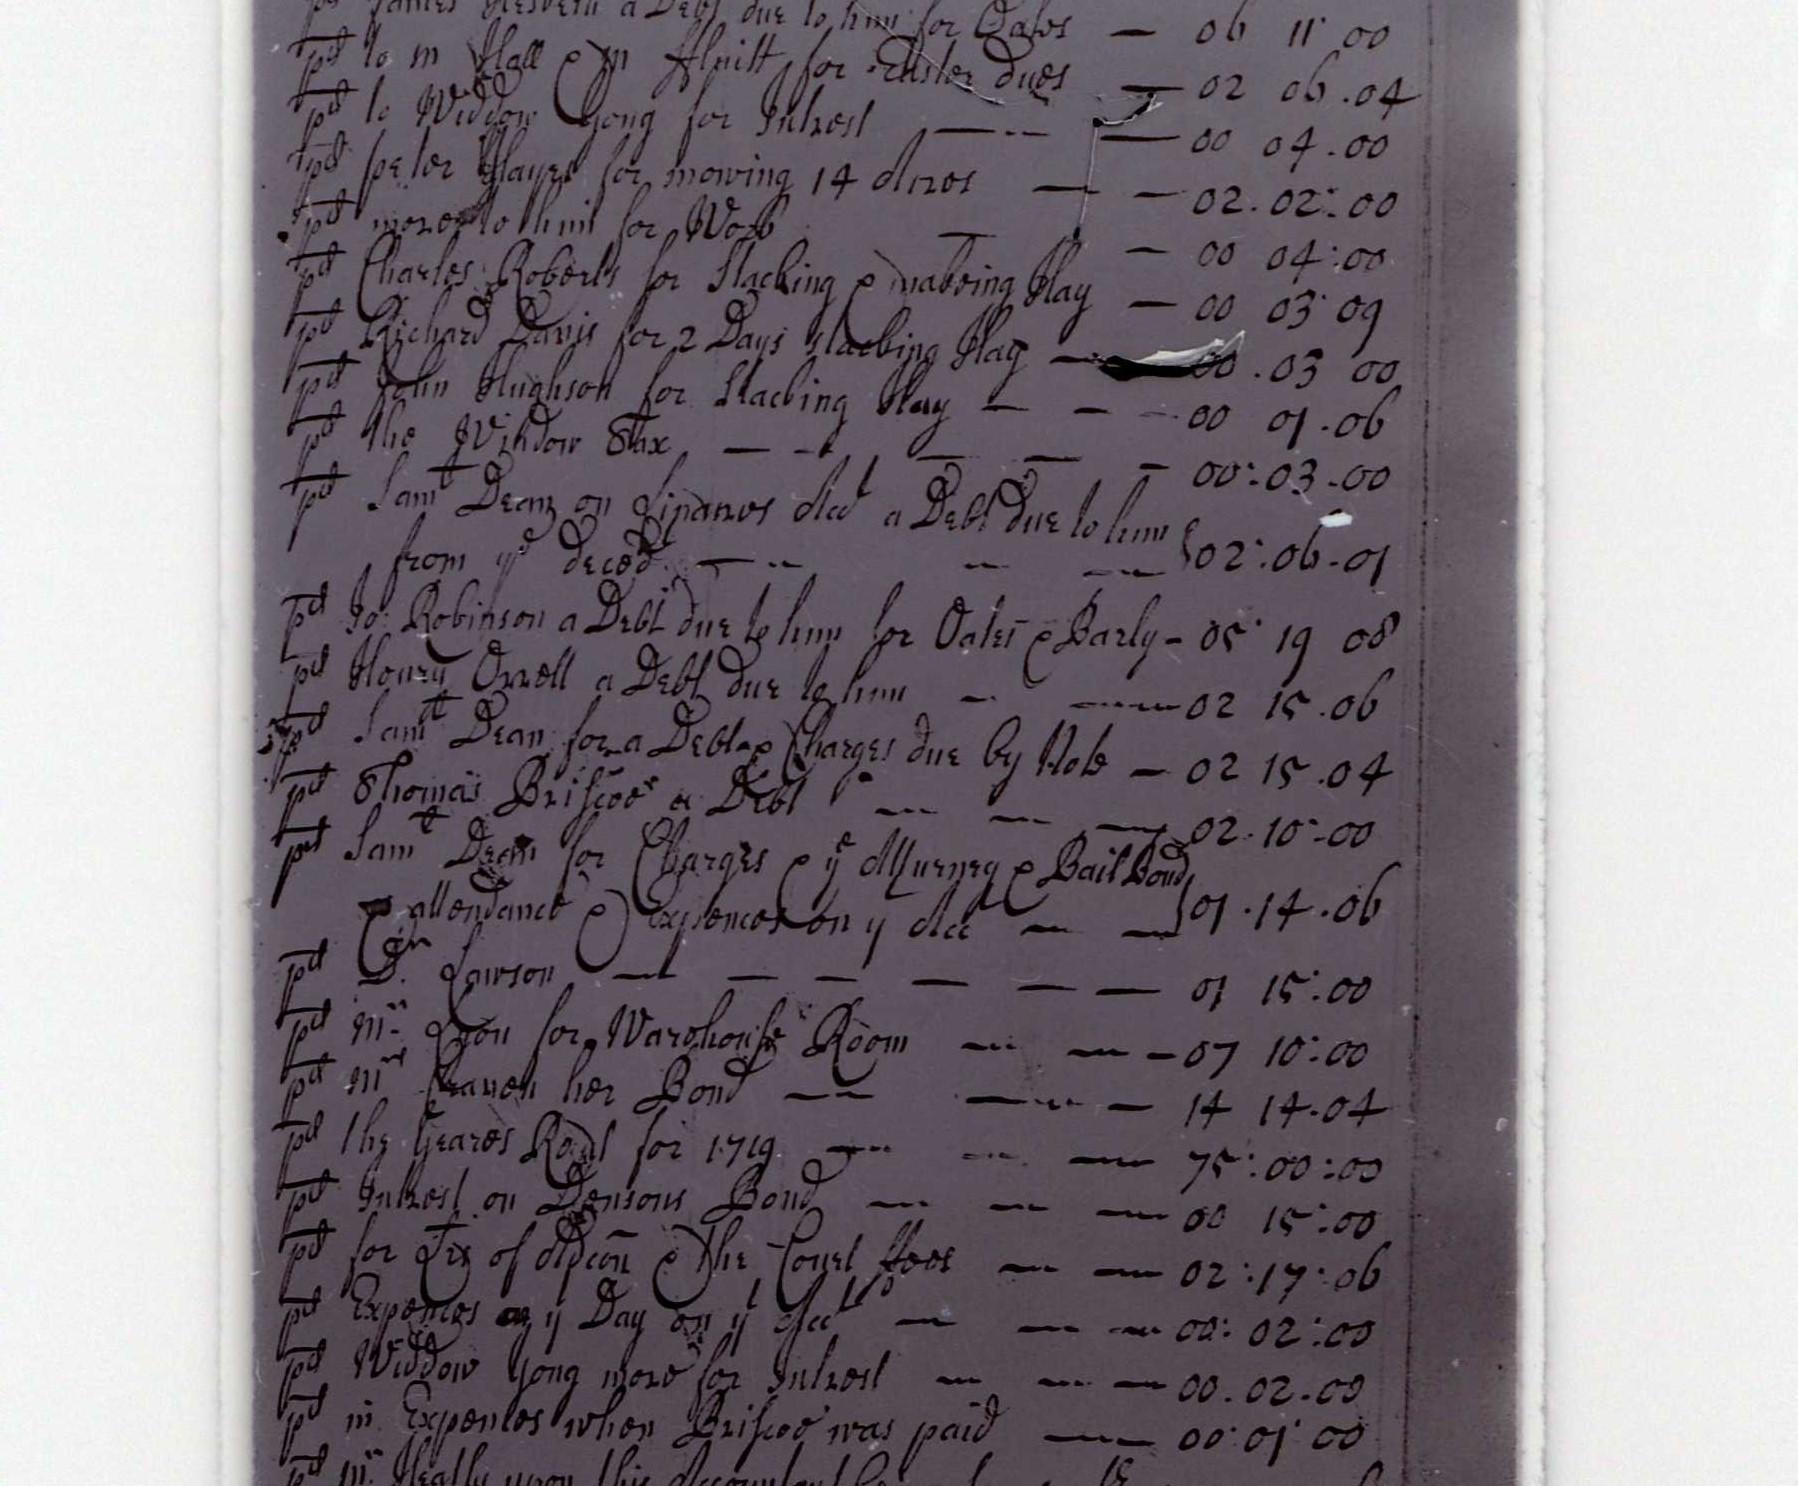 pd James Hesketh a Debt due to him for Oates — 06 11 00
pd to mr Hall & mr for Easter dues — 02 06 .04
pd to Widdow Yong for Intrest — 00 04 .00
pd peter Hayes for mowing 14 Acres — 02. 02: 00
pd more to him for Work — 00 04: 00
pd Charles Roberts for Stacking & makeing Hay — 00 03 09
pd Richard Davis for 2 Days stacking Hay — 00 .03 00
pd John Hughson for Stacking Hay — 00 01 .06
pd the Window Tax — 00: 03 .00
pd Samll Dean on Acct a Debt due to him
from ye deced — 02: .06 -01
pd Jo: Robinson a Debt due to him for Oates & Barly - 05 19 08
pd Henry Orrell a Debt due to him — 02 15 .06
pd Samll Dean for a Debt & Charges due by Note — 02 15 .04
pd Thomas Briscoe a Debt — 02. 10 -00
pd Samll Dean for Charges & ye Atturney & Bail Bond
& attendance & expences on ye Acct — 01 .14 .06
pd Dr. Lawson — 01 15: 00
pd mr Lyon for Warehouse Room — 07 10: 00
pd mrs Craven her Bond — 14 14 .04
pd the Yeares Rent for 1719 — 75: 00 :00
pd Intrest on Densons Bond — 00 15: 00
pd for Lrs of Adcon & the Court ffees — 02 :17 :06
pd Expences ye Day on ye Acct — 00: 02 :00
pd Widdow Yong more for Intrest — 00. 02 .00
pd in Expences when Briscoe was paid — 00: 01 00
pd mr Heally upon this Accountant